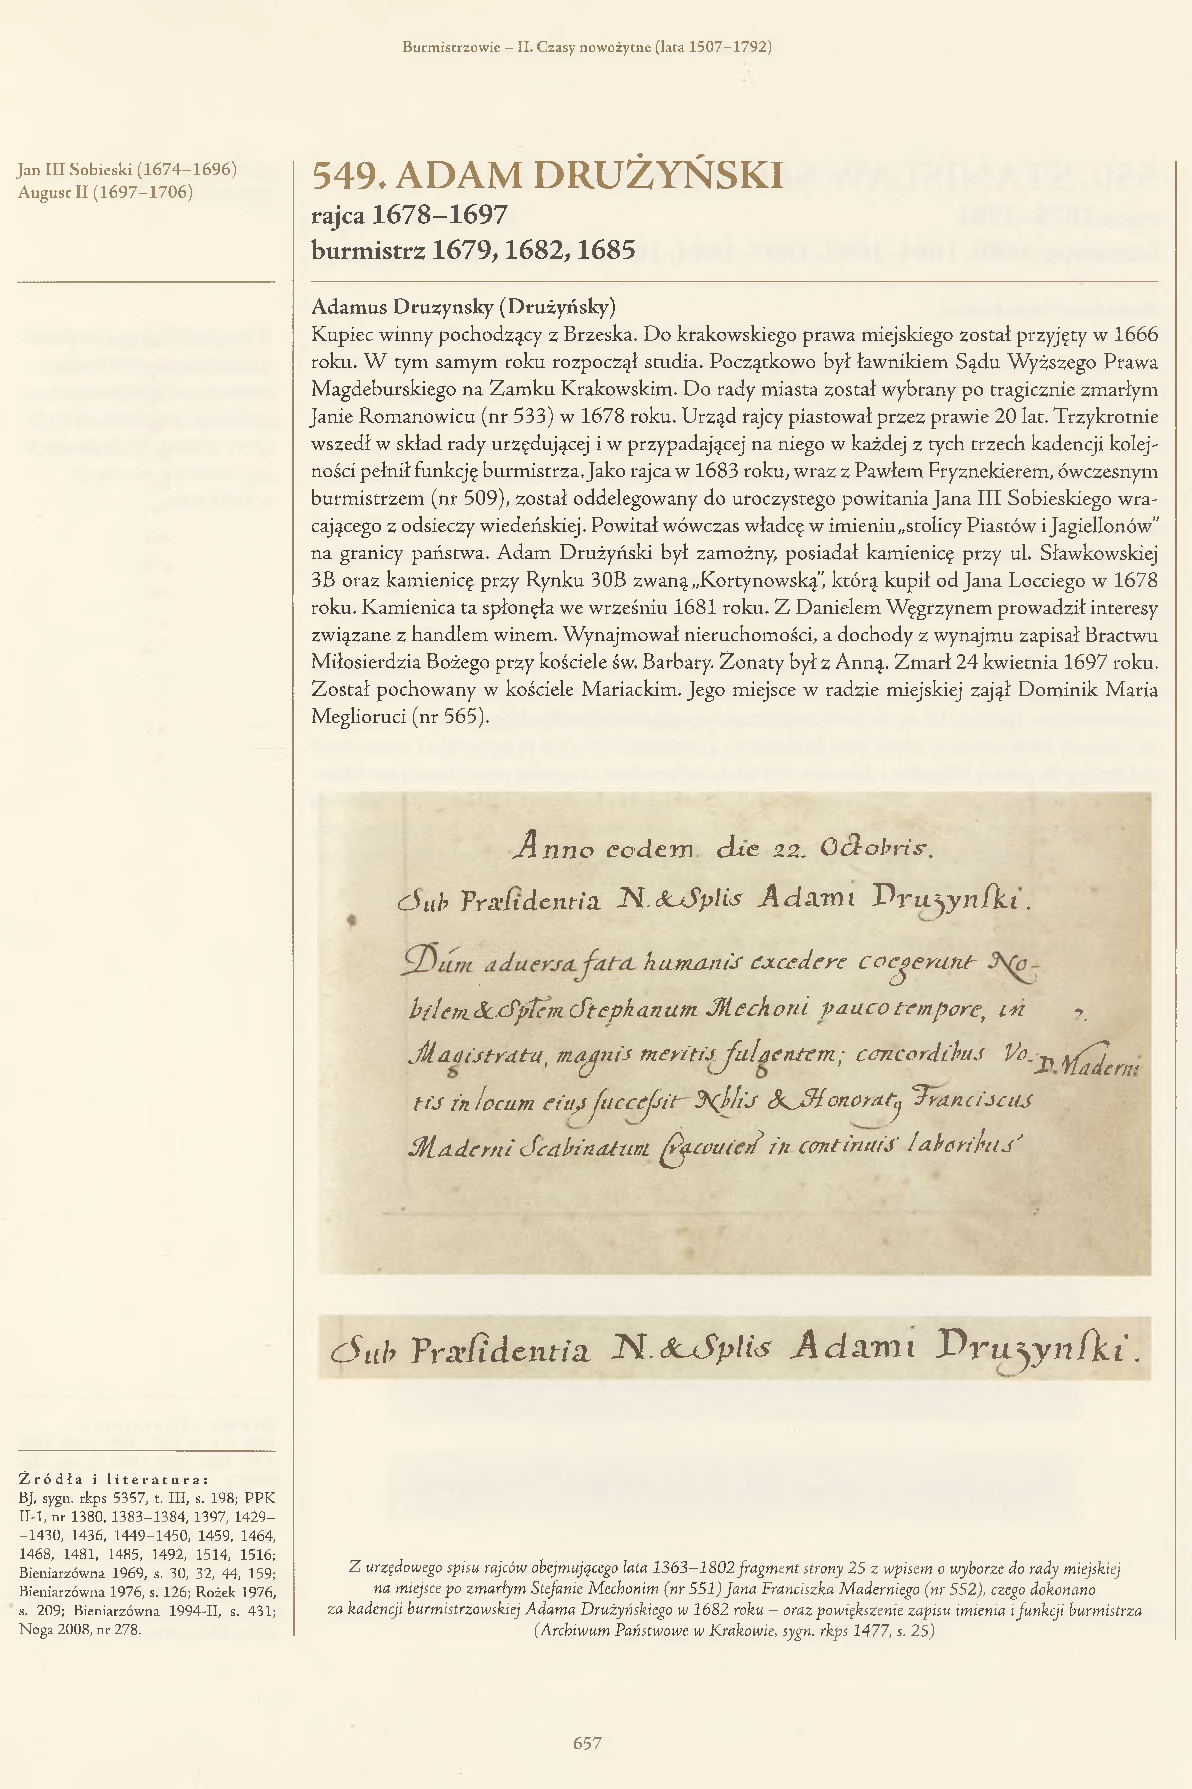 Burmistrzowie – II. Czasy nowożytne (lata 1507–1792)
Jan III Sobieski (1674–1696)
August II (1697–1706)
549. ADAM DRUŻYŃSKI
rajca 1678–1697
burmistrz 1679, 1682, 1685
Adamus Druzynsky (Drużyńsky)
Kupiec winny pochodzący z Brzeska. Do krakowskiego prawa miejskiego został przyjęty w 1666
roku. W tym samym roku rozpoczął studia. Początkowo był ławnikiem Sądu Wyższego Prawa
Magdeburskiego na Zamku Krakowskim. Do rady miasta został wybrany po tragicznie zmarłym
Janie Romanowicu (nr 533) w 1678 roku. Urząd rajcy piastował przez prawie 20 lat. Trzykrotnie
wszedł w skład rady urzędującej i w przypadającej na niego w każdej z tych trzech kadencji kolej-
ności pełnił funkcję burmistrza. Jako rajca w 1683 roku, wraz z Pawłem Fryznekierem, ówczesnym
burmistrzem (nr 509), został oddelegowany do uroczystego powitania Jana III Sobieskiego wra-
cającego z odsieczy wiedeńskiej. Powitał wówczas władcę w imieniu „stolicy Piastów i Jagiellonów”
na granicy państwa. Adam Drużyński był zamożny, posiadał kamienicę przy ul. Sławkowskiej
3B oraz kamienicę przy Rynku 30B zwaną „Kortynowską”, którą kupił od Jana Locciego w 1678
roku. Kamienica ta spłonęła we wrześniu 1681 roku. Z Danielem Węgrzynem prowadził interesy
związane z handlem winem. Wynajmował nieruchomości, a dochody z wynajmu zapisał Bractwu
Miłosierdzia Bożego przy kościele św. Barbary. Żonaty był z Anną. Zmarł 24 kwietnia 1697 roku.
Został pochowany w kościele Mariackim. Jego miejsce w radzie miejskiej zajął Dominik Maria
Meglioruci (nr 565).
Anno eodem. die 22. Octobris.
Sub Præſidentia N. & Splis Adami Druzynſki.
Dum aduersa fata humanis excedere coegerunt No-
bilem & Spłem Stephanum Mechoni pauco tempore, in
Magistratu, magnis meritis fulgentem; concordibus Vo-
D. Maderni
tis in locum eius ſucceſsit Nblis & Honoratq Franciscus
Maderni Scabinatum Cracouien in continuis laboribus
Sub Præſidentia N. & Splis Adami Druzynſki.
Źródła i literatura:
BJ, sygn. rkps 5357, t. III, s. 198; PPK
II-1, nr 1380, 1383–1384, 1397, 1429–
–1430, 1436, 1449–1450, 1459, 1464,
1468, 1481, 1485, 1492, 1514, 1516;
Bieniarzówna 1969, s. 30, 32, 44, 159;
Bieniarzówna 1976, s. 126; Rożek 1976,
s. 209; Bieniarzówna 1994-II, s. 431;
Noga 2008, nr 278.
Z urzędowego spisu rajców obejmującego lata 1363–1802 fragment strony 25 z wpisem o wyborze do rady miejskiej
na miejsce po zmarłym Stefanie Mechonim (nr 551) Jana Franciszka Maderniego (nr 552), czego dokonano
za kadencji burmistrzowskiej Adama Drużyńskiego w 1682 roku – oraz powiększenie zapisu imienia i funkcji burmistrza
(Archiwum Państwowe w Krakowie, sygn. rkps 1477, s. 25)
657